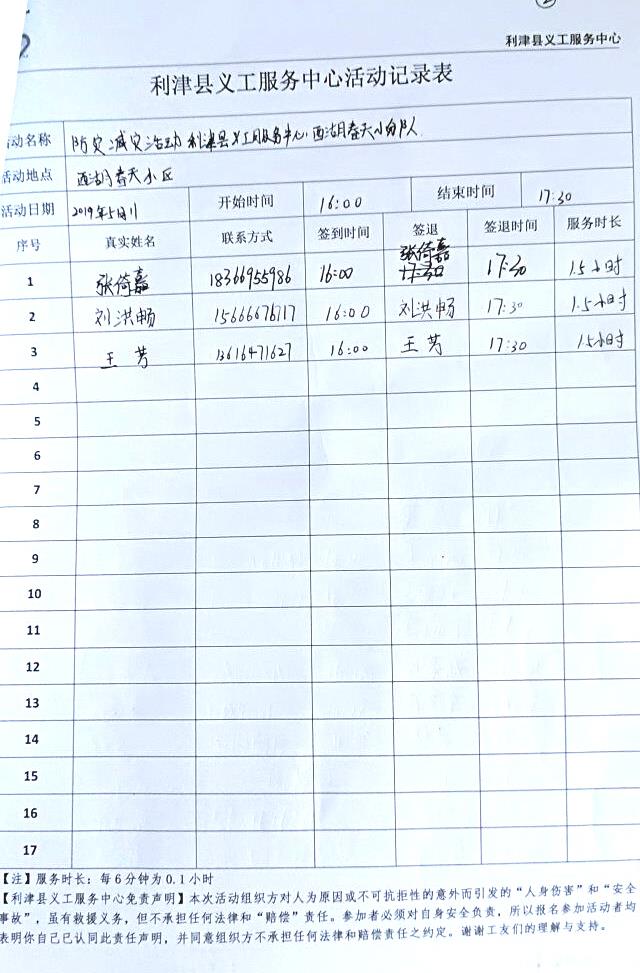 ②
利津县义工服务中心
利津县义工服务中心活动记录表
活动名称 防灾减灾活动 利津县义工服务中心 西湖春天小分队
活动地点 西湖春天小区
活动日期 2019年5月11 开始时间 16:00 结束时间 17:30
序号 真实姓名 联系方式 签到时间 签退 签退时间 服务时长
1 张倚嘉 18366955986 16:00 张倚嘉 17:30 1.5小时
2 刘洪畅 15666676717 16:00 刘洪畅 17:30 1.5小时
3 王芳 13616471627 16:00 王芳 17:30 1.5小时
4
5
6
7
8
9
10
11
12
13
14
15
16
17
【注】服务时长：每6分钟为0.1小时
【利津县义工服务中心免责声明】本次活动组织方对人为原因或不可抗拒性的意外而引发的“人身伤害”和“安全
事故”，虽有救援义务，但不承担任何法律和“赔偿”责任。参加者必须对自身安全负责，所以报名参加活动者均
表明你自己已认同此责任声明，并同意组织方不承担任何法律和赔偿责任之约定。谢谢工友们的理解与支持。